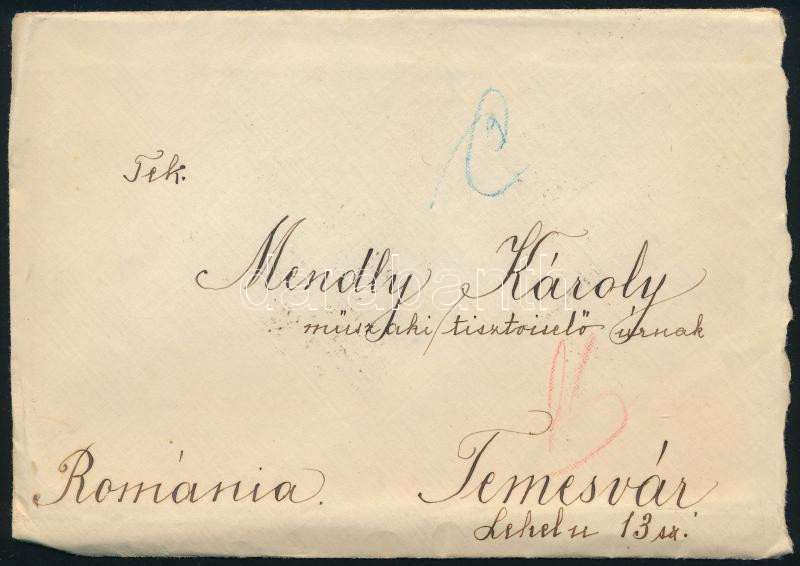 Tek.
Mendly Károly
műszaki tisztviselő úrnak
Románia. Temesvár
Lehel u 13 sz.
darabanth